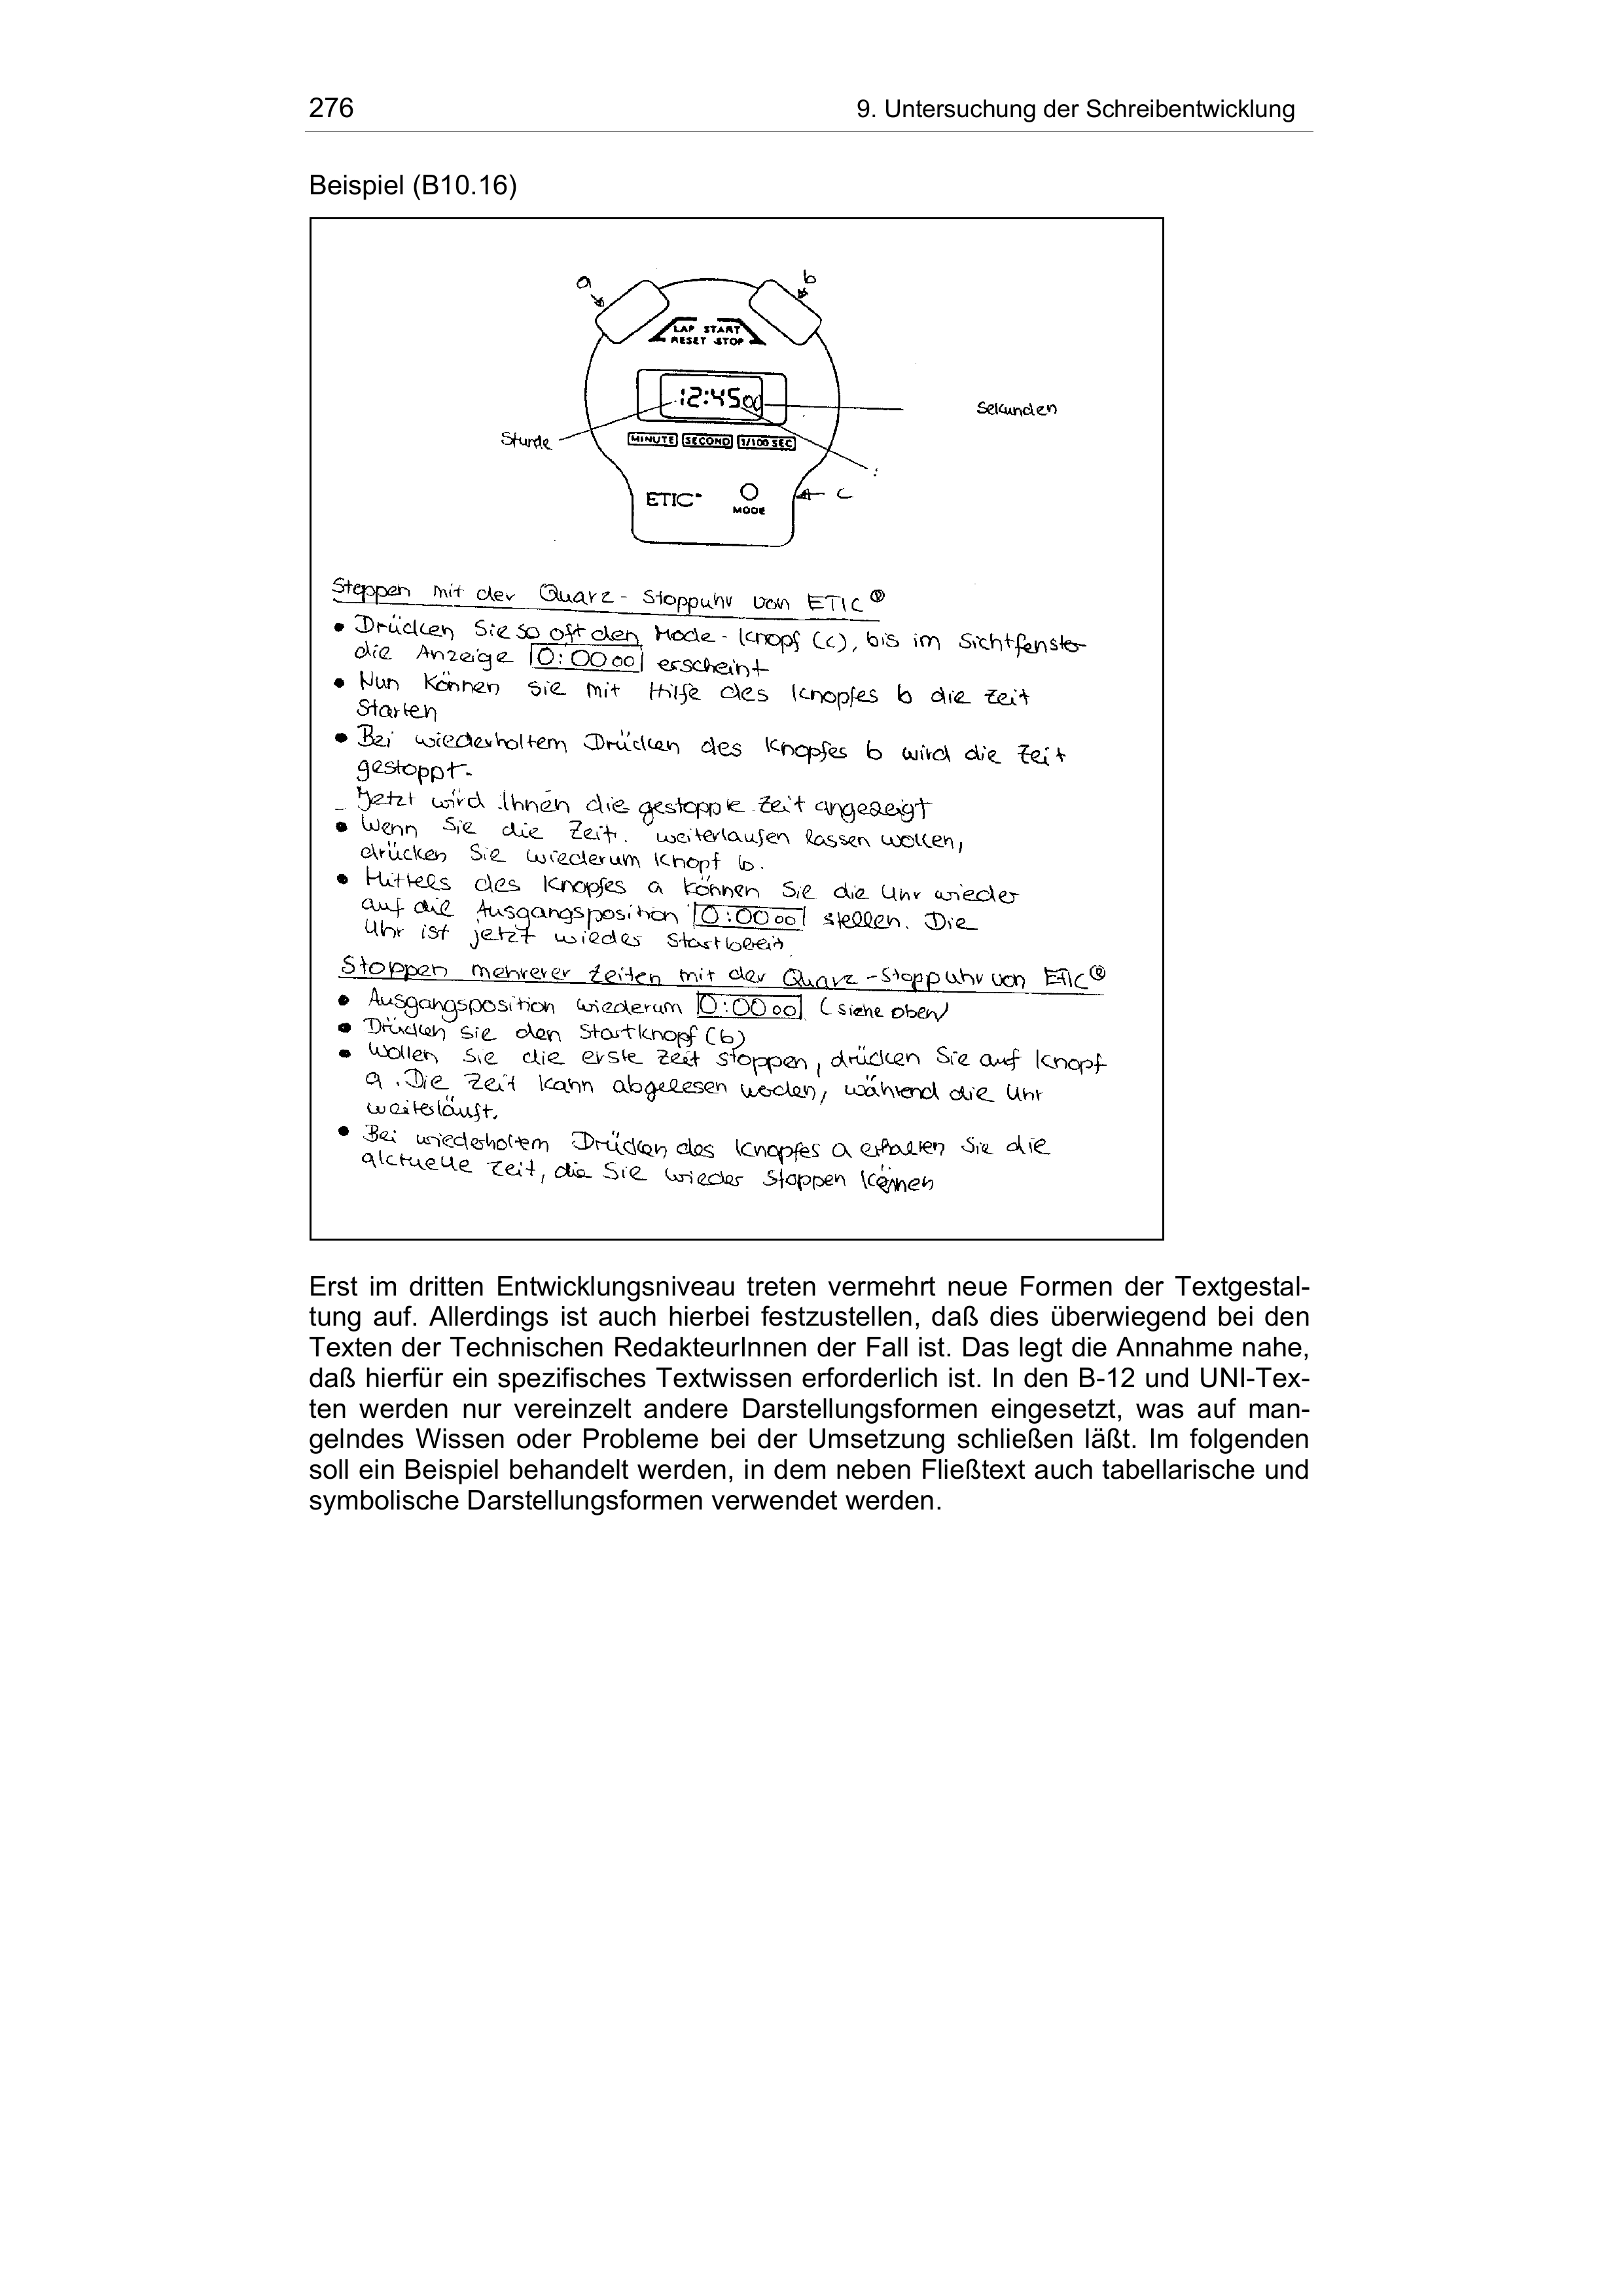 276 9. Untersuchung der Schreibentwicklung
Beispiel (B10.16)
a b
LAP START
RESET STOP
12:45 00
Sekunden
Stunde
MINUTE SECOND 1/100 SEC
:
ETIC
c
MODE
Stoppen mit der Quarz-Stoppuhr von ETIC ®
• Drücken Sie so oft den Mode-Knopf (c), bis im Sichtfenster
die Anzeige 0:00 00 erscheint
• Nun können Sie mit Hilfe des Knopfes b die Zeit
Starten
• Bei wiederholtem Drücken des Knopfes b wird die Zeit
gestoppt.
_ Jetzt wird Ihnen die gestoppte Zeit angezeigt
• Wenn Sie die Zeit. weiterlaufen lassen wollen,
drücken Sie wiederum Knopf b.
• Mittels des Knopfes a können Sie die Uhr wieder
auf die Ausgangsposition 0:00 00 stellen. Die
Uhr ist jetzt wieder Startbereit
Stoppen mehrerer Zeiten mit der Quarz-Stoppuhr von ETIC ®
• Ausgangsposition wiederum 0:00 00 (siehe oben)
• Drücken Sie den Startknopf (b)
• Wollen Sie die erste Zeit stoppen, drücken Sie auf Knopf
a. Die Zeit kann abgelesen werden, während die Uhr
weiterläuft.
• Bei wiederholtem Drücken des Knopfes a erhalten Sie die
aktuelle Zeit, die Sie wieder Stoppen können
Erst im dritten Entwicklungsniveau treten vermehrt neue Formen der Textgestal-
tung auf. Allerdings ist auch hierbei festzustellen, daß dies überwiegend bei den
Texten der Technischen RedakteurInnen der Fall ist. Das legt die Annahme nahe,
daß hierfür ein spezifisches Textwissen erforderlich ist. In den B-12 und UNI-Tex-
ten werden nur vereinzelt andere Darstellungsformen eingesetzt, was auf man-
gelndes Wissen oder Probleme bei der Umsetzung schließen läßt. Im folgenden
soll ein Beispiel behandelt werden, in dem neben Fließtext auch tabellarische und
symbolische Darstellungsformen verwendet werden.